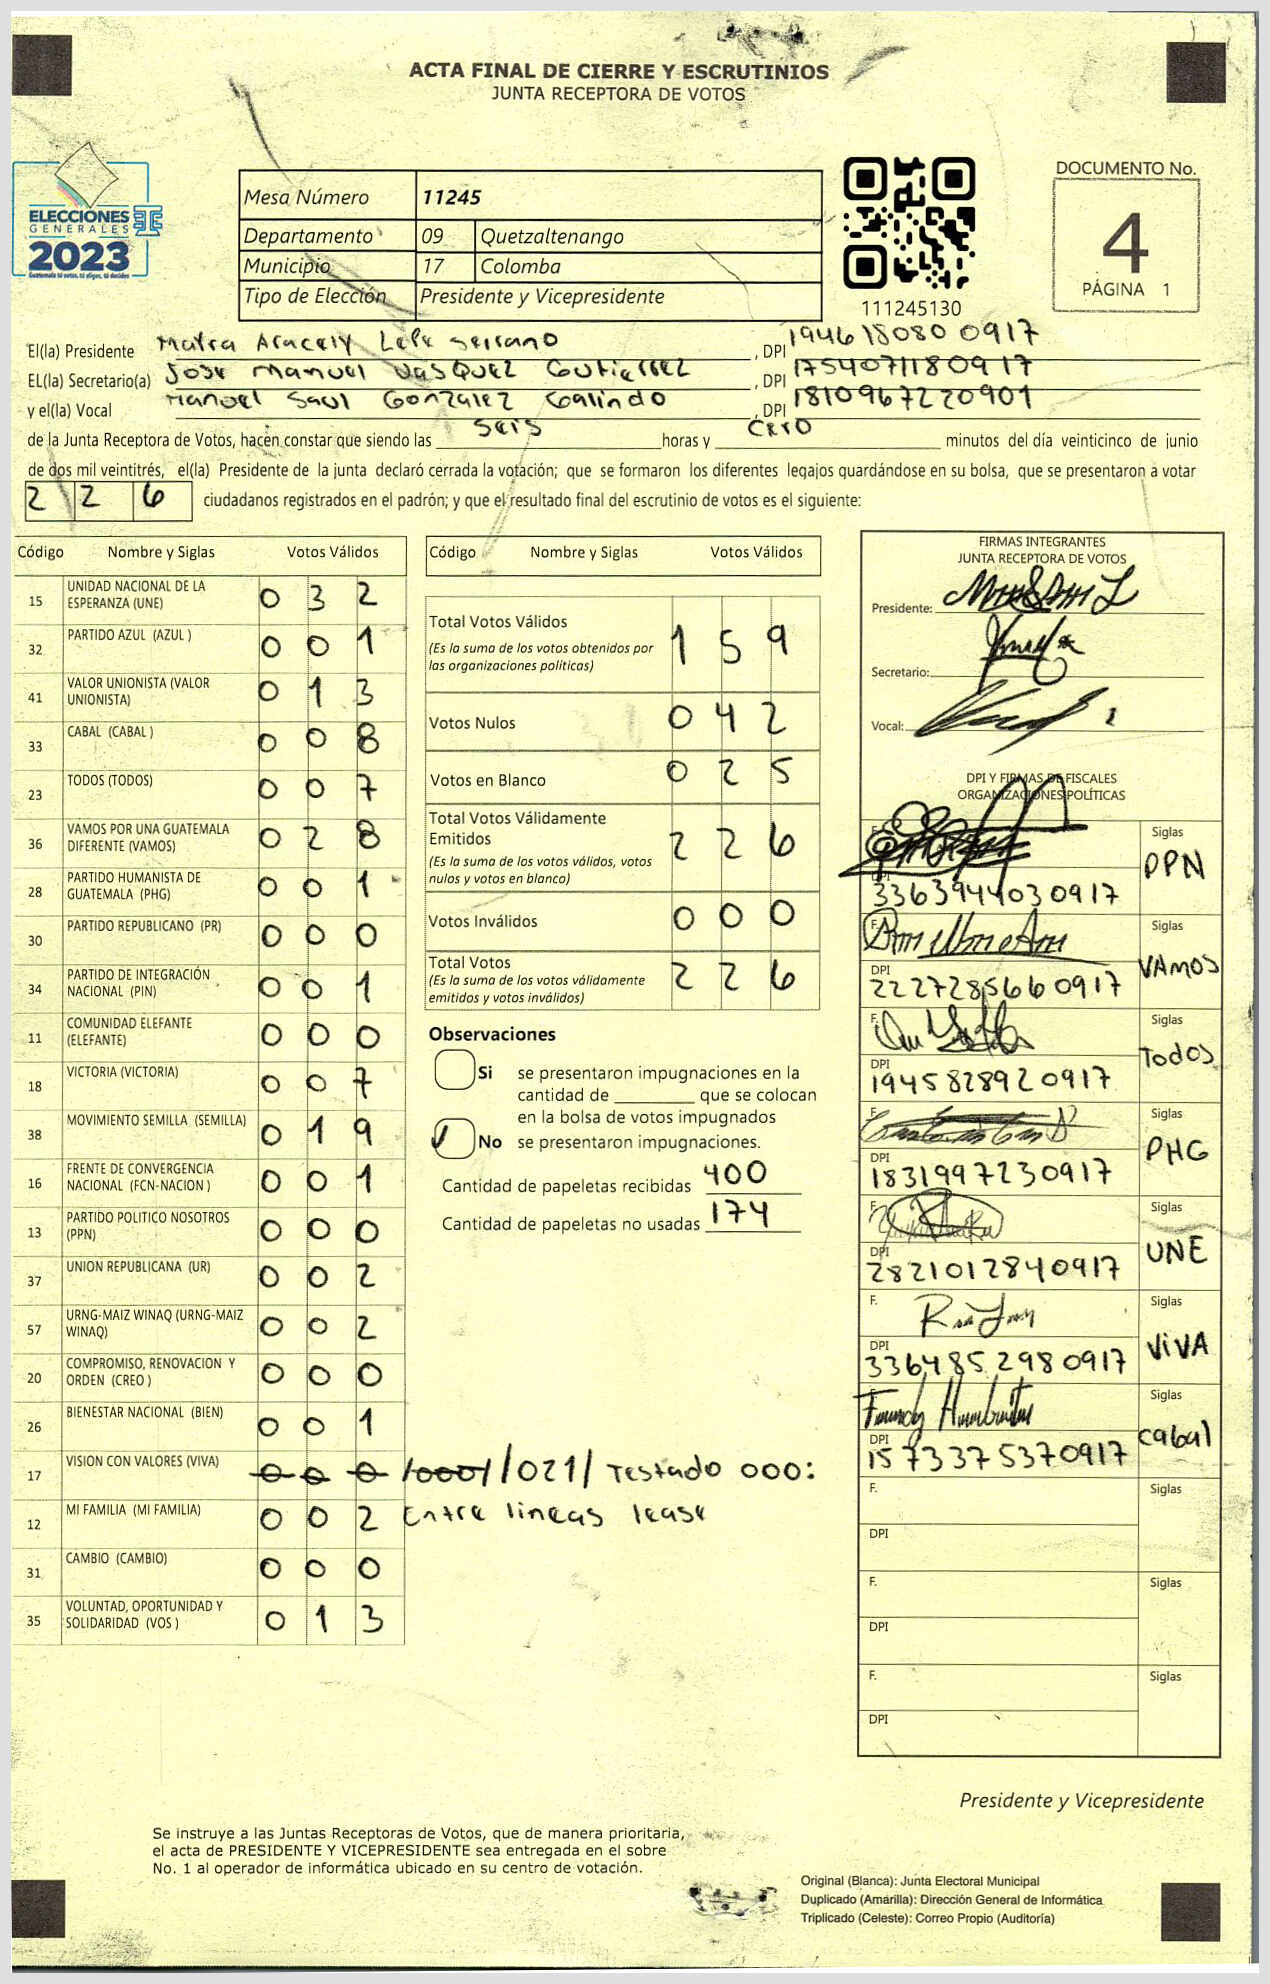 ACTA FINAL DE CIERRE Y ESCRUTINIOS
JUNTA RECEPTORA DE VOTOS
ELECCIONES
GENERALES
2023
Guatemala tú votas, tú eliges, tú decides
Mesa Número 11245
Departamento 09 Quetzaltenango
Municipio 17 Colomba
Tipo de Elección Presidente y Vicepresidente
111245130
DOCUMENTO No.
4
PÁGINA 1
El(la) Presidente Maira Aracely Lepe Serrano , DPI 194618080 0917
EL(la) Secretario(a) Jose Manuel Vasquez Gutierrez , DPI 1754071180917
y el(la) Vocal Manuel Saul Gonzalez Galindo , DPI 1810967220901
de la Junta Receptora de Votos, hacen constar que siendo las seis horas y cero minutos del día veinticinco de junio
de dos mil veintitrés, el(la) Presidente de la junta declaró cerrada la votación; que se formaron los diferentes legajos quardándose en su bolsa, que se presentaron a votar
2 2 6 ciudadanos registrados en el padrón; y que el resultado final del escrutinio de votos es el siguiente:
Código Nombre y Siglas Votos Válidos
15 UNIDAD NACIONAL DE LA ESPERANZA (UNE) 0 3 2
32 PARTIDO AZUL (AZUL ) 0 0 1
41 VALOR UNIONISTA (VALOR UNIONISTA) 0 1 3
33 CABAL (CABAL ) 0 0 8
23 TODOS (TODOS) 0 0 7
36 VAMOS POR UNA GUATEMALA DIFERENTE (VAMOS) 0 2 8
28 PARTIDO HUMANISTA DE GUATEMALA (PHG) 0 0 1
30 PARTIDO REPUBLICANO (PR) 0 0 0
34 PARTIDO DE INTEGRACIÓN NACIONAL (PIN) 0 0 1
11 COMUNIDAD ELEFANTE (ELEFANTE) 0 0 0
18 VICTORIA (VICTORIA) 0 0 7
38 MOVIMIENTO SEMILLA (SEMILLA) 0 1 9
16 FRENTE DE CONVERGENCIA NACIONAL (FCN-NACION ) 0 0 1
13 PARTIDO POLITICO NOSOTROS (PPN) 0 0 0
37 UNION REPUBLICANA (UR) 0 0 2
57 URNG-MAIZ WINAQ (URNG-MAIZ WINAQ) 0 0 2
20 COMPROMISO, RENOVACION Y ORDEN (CREO ) 0 0 0
26 BIENESTAR NACIONAL (BIEN) 0 0 1
17 VISION CON VALORES (VIVA) 0 0 0 /000/ /021/ Testado 000:
12 MI FAMILIA (MI FAMILIA) 0 0 2 Entre lineas lease
31 CAMBIO (CAMBIO) 0 0 0
35 VOLUNTAD, OPORTUNIDAD Y SOLIDARIDAD (VOS ) 0 1 3
Código Nombre y Siglas Votos Válidos
Total Votos Válidos 1 5 9
(Es la suma de los votos obtenidos por
las organizaciones politicas)
Votos Nulos 0 4 2
Votos en Blanco 0 2 5
Total Votos Válidamente
Emitidos 2 2 6
(Es la suma de los votos válidos, votos
nulos y votos en blanco)
Votos Inválidos 0 0 0
Total Votos 2 2 6
(Es la suma de los votos válidamente
emitidos y votos inválidos)
Observaciones
Si se presentaron impugnaciones en la
cantidad de ________ que se colocan
en la bolsa de votos impugnados
No se presentaron impugnaciones.
Cantidad de papeletas recibidas 400
Cantidad de papeletas no usadas 174
FIRMAS INTEGRANTES
JUNTA RECEPTORA DE VOTOS
Presidente:
Secretario:
Vocal:
DPI Y FIRMAS DE FISCALES
ORGANIZACIONES POLÍTICAS
F. Siglas PPN
DPI 3363944030917
F. Siglas VAMOS
DPI 2227285660917
F. Siglas Todos
DPI 1945828920917
F. Siglas PHG
DPI 1831997230917
F. Siglas UNE
DPI 2821012840917
F. Siglas ViVA
DPI 3364852980917
F. Siglas cabal
DPI 1573375370917
F. Siglas
DPI
F. Siglas
DPI
F. Siglas
DPI
Presidente y Vicepresidente
Se instruye a las Juntas Receptoras de Votos, que de manera prioritaria,
el acta de PRESIDENTE Y VICEPRESIDENTE sea entregada en el sobre
No. 1 al operador de informática ubicado en su centro de votación.
Original (Blanca): Junta Electoral Municipal
Duplicado (Amarilla): Dirección General de Informática
Triplicado (Celeste): Correo Propio (Auditoría)